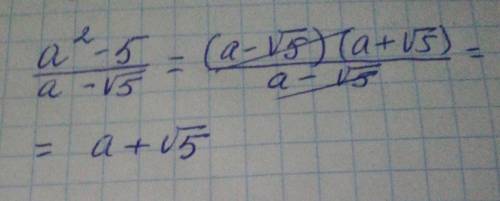 (a² - 5)/(a - √5) = ((a - √5)(a + √5))/(a - √5) =
= a + √5